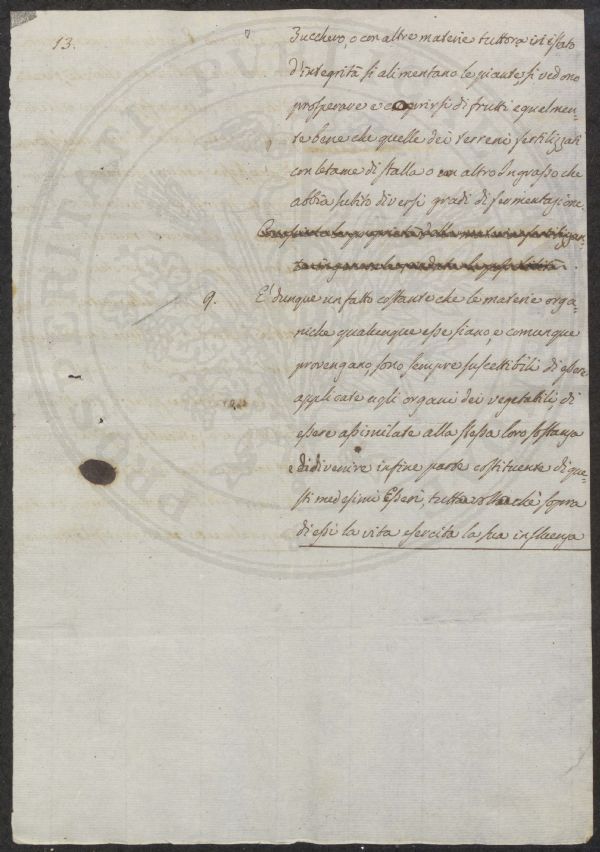 13.
Zucchero, o con altre materie tuttora in istato
d'integrità si alimentano le piante, si vedono
prosperare e coprirsi di frutti egualmen-
te bene che quelle dei terreni fertilizzati
con letame di stalla o con altro Ingrasso che
abbia subito diversi gradi di fermentazione.
9. E' dunque un fatto costante che le materie orga-
niche qualunque esse siano, e comunque
provengano, sono sempre suscettibili di essere
applicate agli organi dei vegetabili, di
essere assimilate alla stessa loro sostanza
e di divenire infine parte costituente di que-
sti medesimi Esseri, tutta volta chè sopra
di essi la vita esercita la sua influenza
PROSPERITATI PVBLIC